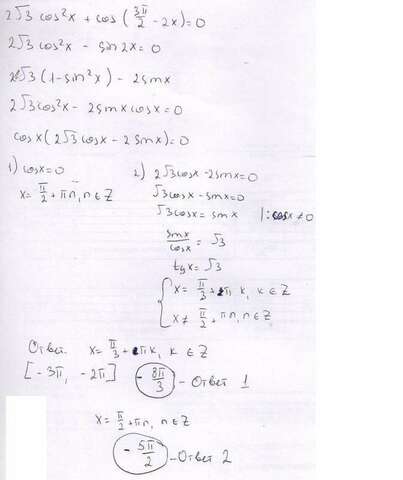 2√3 cos²x + cos(3π/2 - 2x) = 0
2√3 cos²x - sin2x = 0
2√3(1-sin²x) - 2sinx
2√3cos²x - 2sinxcosx = 0
cosx(2√3cosx - 2sinx) = 0
1) cosx = 0 2) 2√3cosx - 2sinx = 0
x = π/2 + πn, n ∈ Z √3cosx - sinx = 0
√3cosx = sinx |: cosx ≠ 0
sinx/cosx = √3
tgx = √3
{ x = π/3 + πk, k ∈ Z
x ≠ π/2 + πn, n ∈ Z
Ответ. x = π/3 + πk, k ∈ Z
[-3π, -2π] -8π/3 - Ответ 1
x = π/2 + πn, n ∈ Z
-5π/2 - Ответ 2